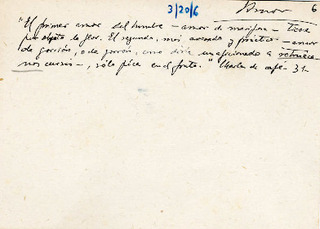 3/20/6
Amor 6
"El primer amor del hombre - amor de mariposa - tiene
por objeto la flor. El segundo, más avanzado y práctico - amor
de gorrión, o de gorrón, como diría un aficionado a retruéca-
nos cursis -, sólo pica en el fruto." Charlas de café - 31-